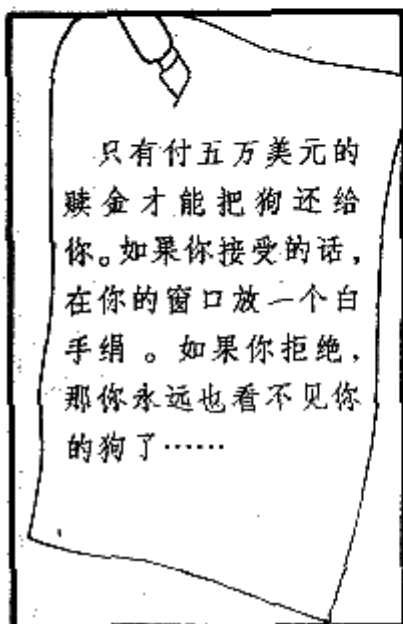 只有付五万美元的
赎金才能把狗还给
你。如果你接受的话，
在你的窗口放一个白
手绢。如果你拒绝，
那你永远也看不见你
的狗了……